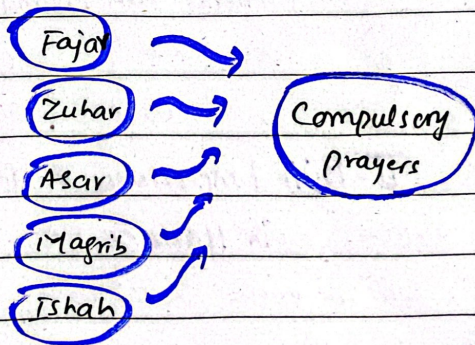 Fajar
Zuhar
Asar
Magrib
Ishah
Compulsory
Prayers